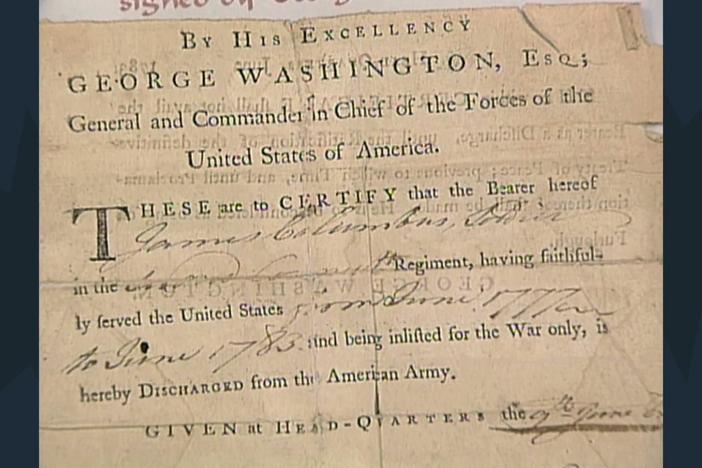 signed by Georg
BY HIS EXCELLENCY
GEORGE WASHINGTON, ESQ;
General and Commander in Chief of the Forces of the
United States of America.
THESE are to CERTIFY that the Bearer hereof
James Columbus, Soldier
in the Regiment, having faithful-
ly served the United States from June 1777
to June 1783 and being inlisted for the War only, is
hereby DISCHARGED from the American Army.
GIVEN at HEAD-QUARTERS the 9th June